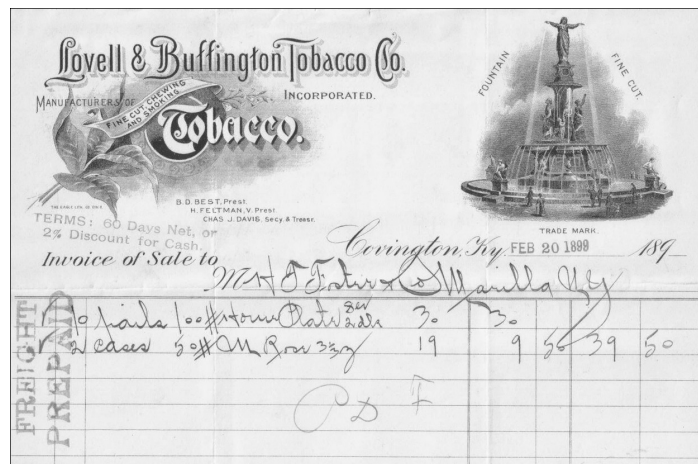 Lovell & Buffington Tobacco Co.
INCORPORATED.
MANUFACTURERS OF
FINE CUT, CHEWING
AND SMOKING
Tobacco.
FOUNTAIN
FINE CUT.
B.D. BEST, Prest.
H. FELTMAN, V. Prest.
CHAS J. DAVIS, Secy & Treasr.
TERMS: 60 Days Net, or
2% Discount for Cash.
TRADE MARK.
Covington, Ky. FEB 20 1899 189
Invoice of Sale to
M H T Foster & Co Marilla N.Y
FREIGHT
PREPAID
10 pails 100# Home Plate 30 30
2 cases 50# Rose 19 9 50 39 50
PD